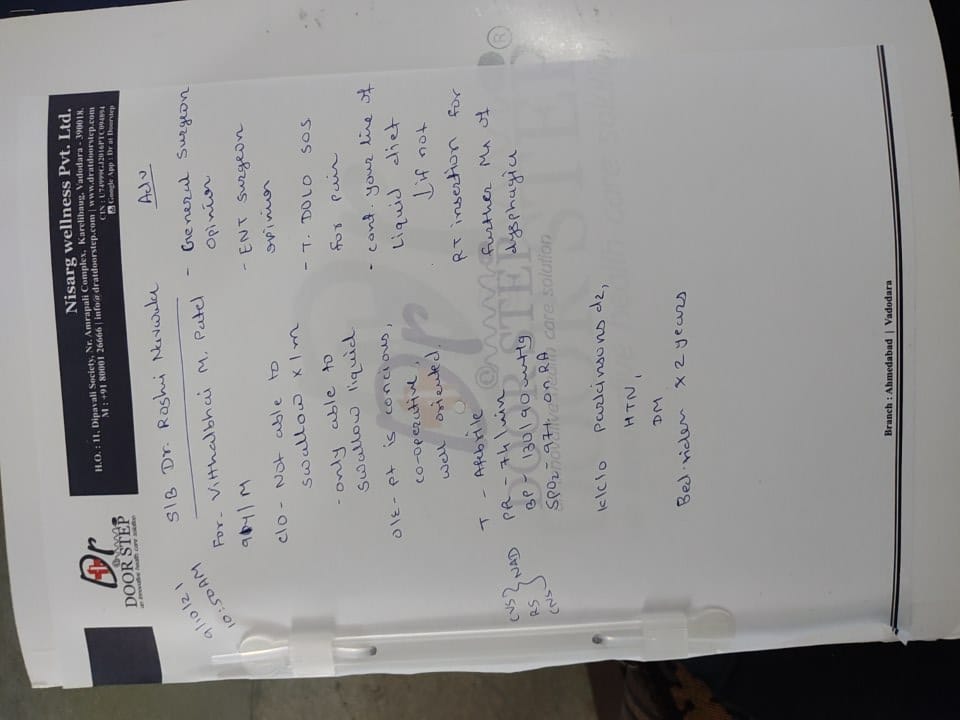 Dr
@
DOOR STEP
an innovative health care solution
Nisarg wellness Pvt. Ltd.
H.O. : 11, Dipavali Society, Nr. Amrapali Complex, Karelibaug, Vadodara - 390018.
M : +91 80001 26666 | info@dratdoorstep.com | www.dratdoorstep.com
CIN : U74999GJ2016PTC094894
Google App : Dr at Doorstep
9/10/21
10:50AM
S/B Dr. Roshni
For - Vitthalbhai M. Patel
/M
C/O - Not able to
swallow x 1m
- only able to
swallow liquid
O/E - Pt is concious,
co-operative,
well oriented.
T - Afebrile
PR - 74/min
BP - 130/90 mmHg
SPO2 - 97% on RA
CVS
RS
CNS
NAD
K/C/O parkinsons dz,
HTN,
DM
Bed-riden x 2 years
Adv
- General Surgeon
opinion
- ENT surgeon
opinion
- T. DOLO SOS
for pain
- cont. your line of
liquid diet
↓ if not
RT insertion for
further Mx of
dysphagia
Dr
@
DOOR STEP
an innovative health care solution
®
Branch : Ahmedabad | Vadodara